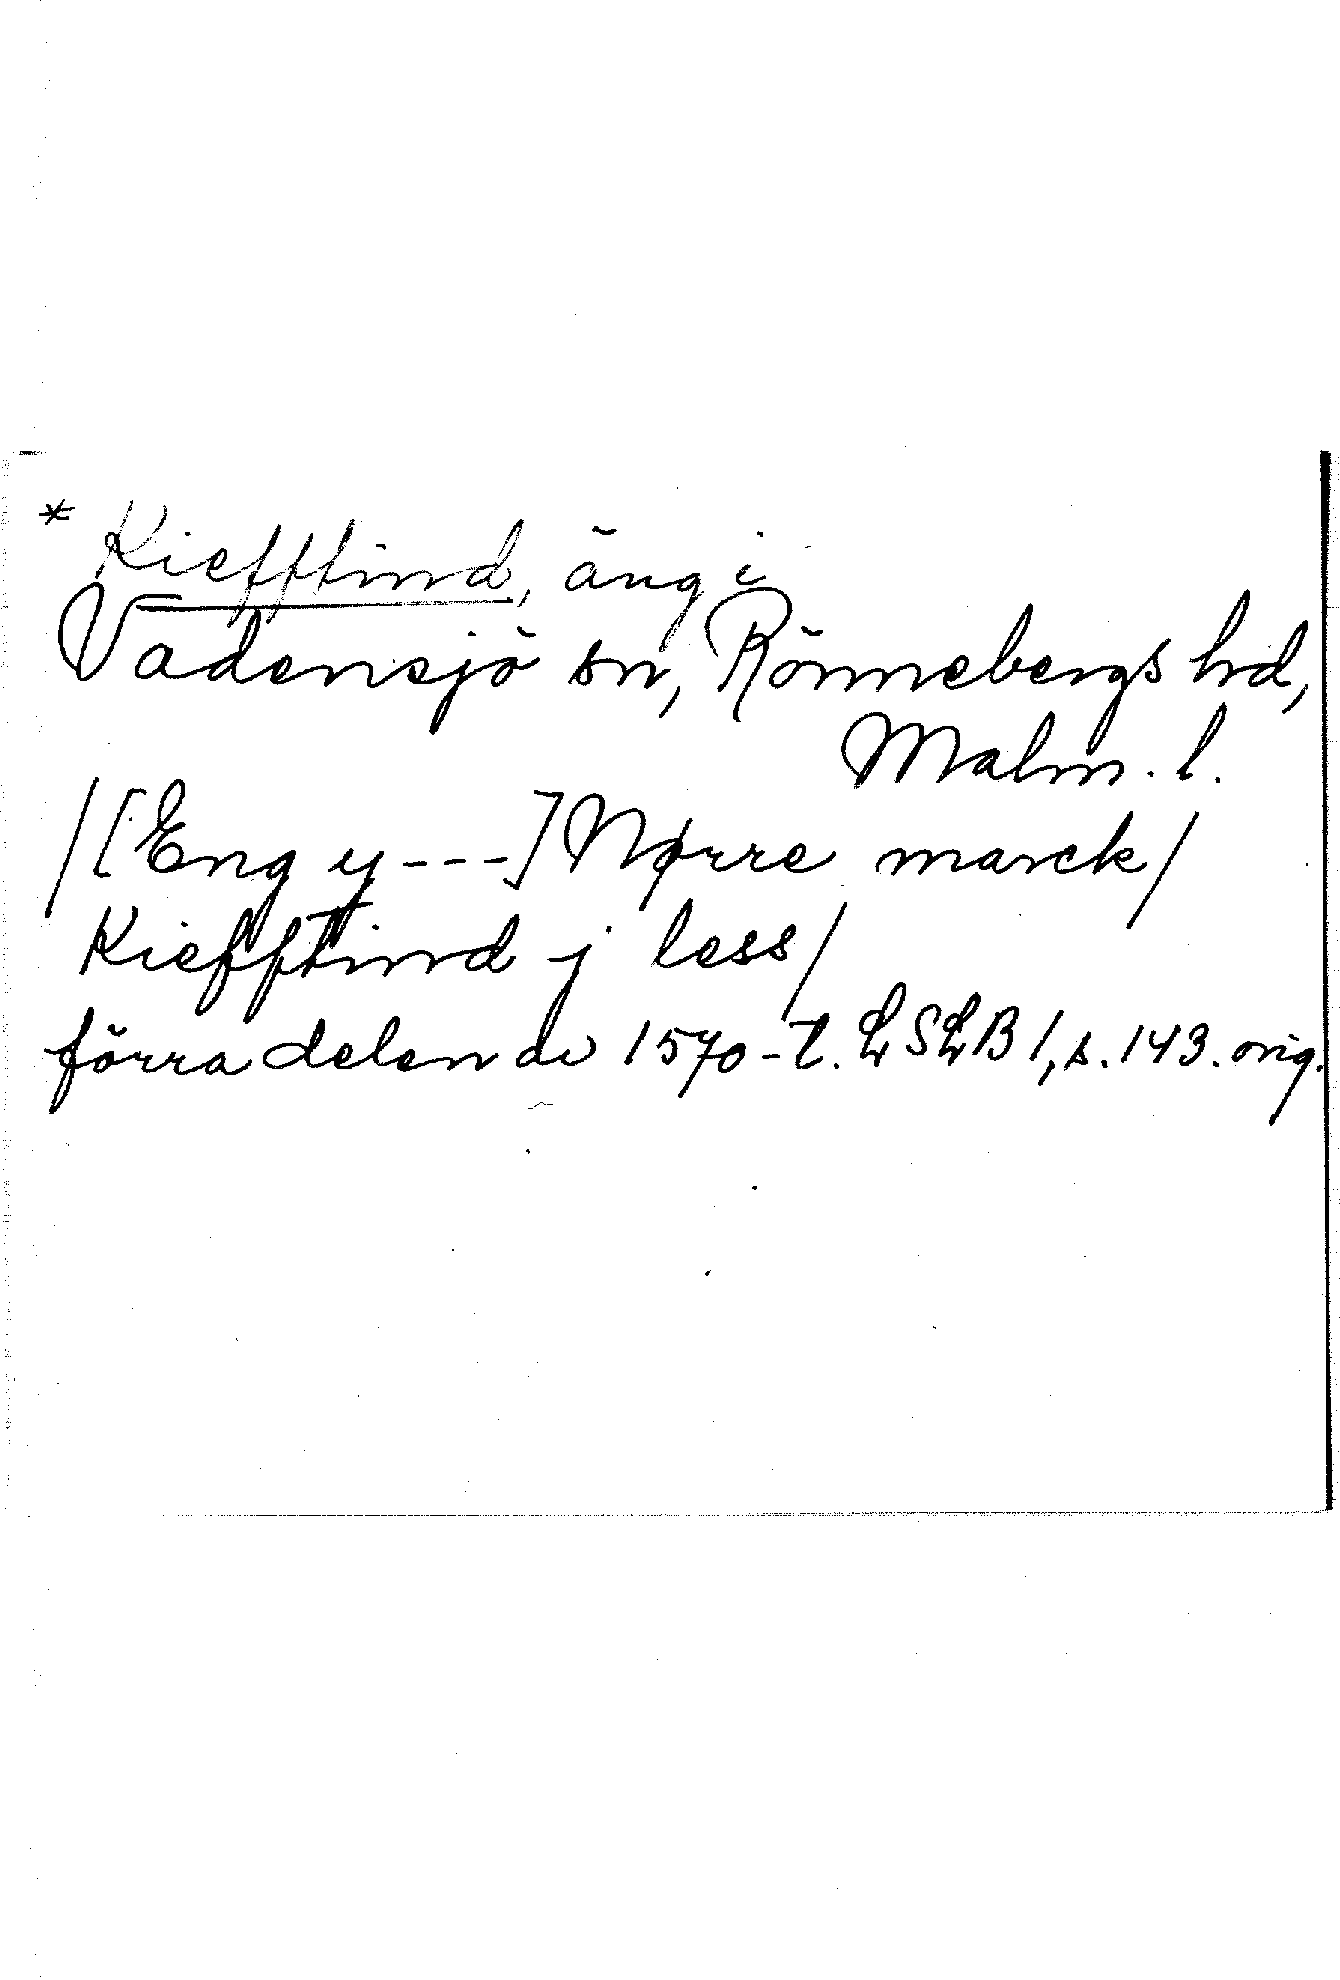 * Kiefftind, äng i
Vadensjö sn, Rönnebergs hd,
Malm. l.
/[Eng y---] Nørre marck/
Kiefftind j less/
förra delen av 1570-t. LSLB 1, s. 143. orig.